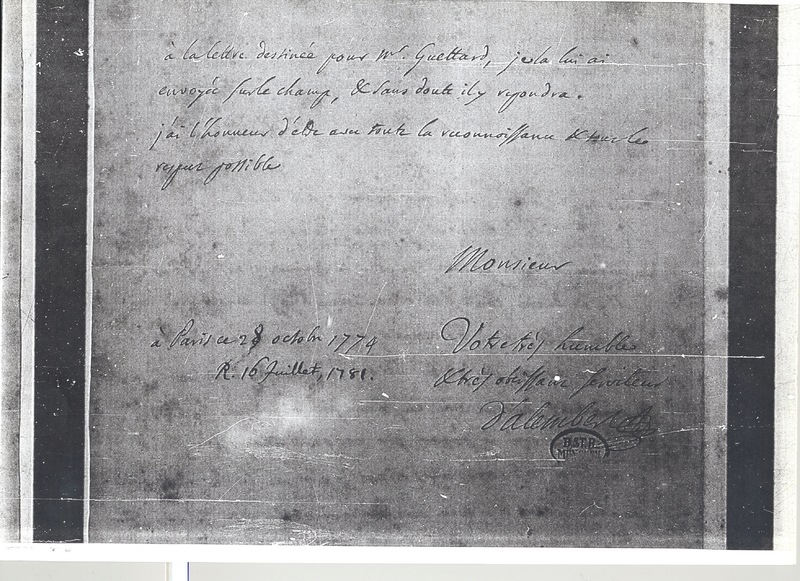 à la lettre destinée pour Mr. Guettard, je la lui ai
envoyée sur le champ, & sans doute il y repondra.
j'ai l'honneur d'être avec toute la reconnoissance & tout le
respect possible
Monsieur
Votre très humble
& très obéissant serviteur
D'alembert
à Paris ce 28 octobr 1774
R. 16 Juillet, 1781.